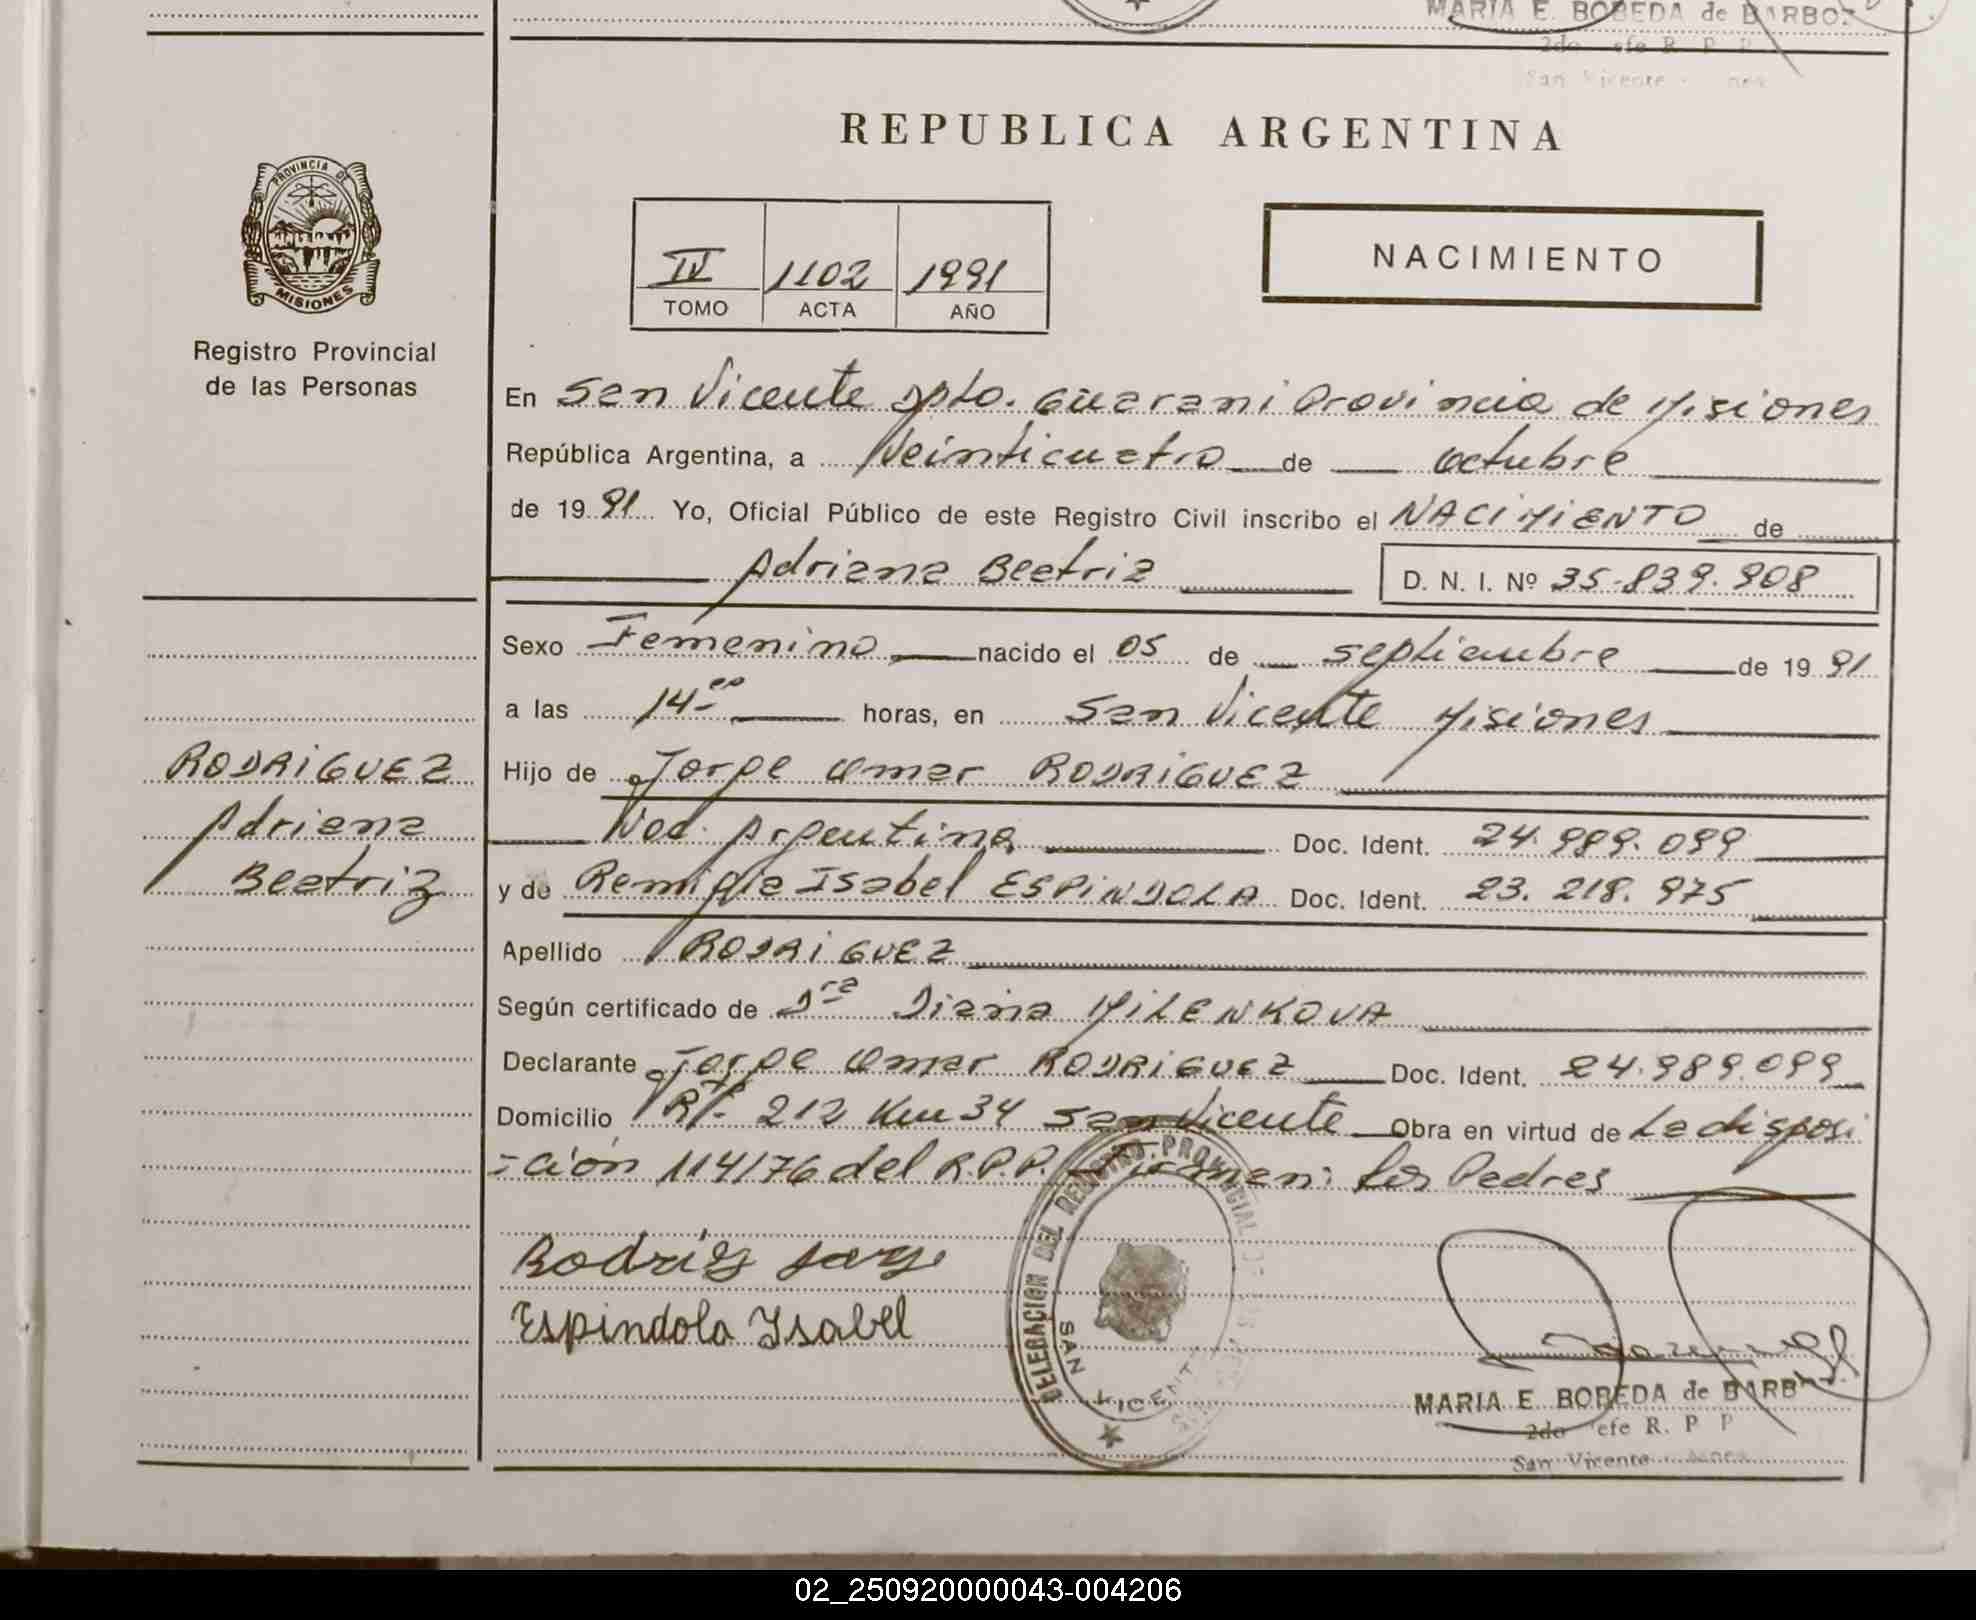 MARIA E. BOBEDA de BARBOZ
2do efe R. P. P
San Vicente
REPUBLICA ARGENTINA
PROVINCIA DE
MISIONES
Registro Provincial
de las Personas
IV 1102 1991
TOMO ACTA AÑO
NACIMIENTO
En San Vicente Dpto. Guarani Provincia de Misiones
República Argentina, a Veinticuatro de octubre
de 19 91 Yo, Oficial Público de este Registro Civil inscribo el NACIMIENTO de
Adriana Beatriz D. N. I. Nº 35.839.908
Sexo Femenino nacido el 05 de septiembre de 19 91
a las 14-00 horas, en San Vicente Misiones
RODRIGUEZ
Adriana
Beatriz
Hijo de Jorge Omar RODRIGUEZ
Nac. Argentina Doc. Ident. 24.989.099
y de Remigia Isabel ESPINDOLA Doc. Ident. 23.218.975
Apellido RODRIGUEZ
Según certificado de Dra Diana MILENKOVA
Declarante Jorge Omar RODRIGUEZ Doc. Ident. 24.989.099
Domicilio Rta. 212 Km 34 San Vicente Obra en virtud de La disposi
-ción 114/76 del R.P.P. Firman: los Padres
Rodrigz Jorge
Espindola Ysabel
DELEGACION DEL REGISTRO PROVINCIAL DE LAS
SAN VICENTE
MARIA E. BOBEDA de BARB
2do efe R. P P
San Vicente
02_250920000043-004206